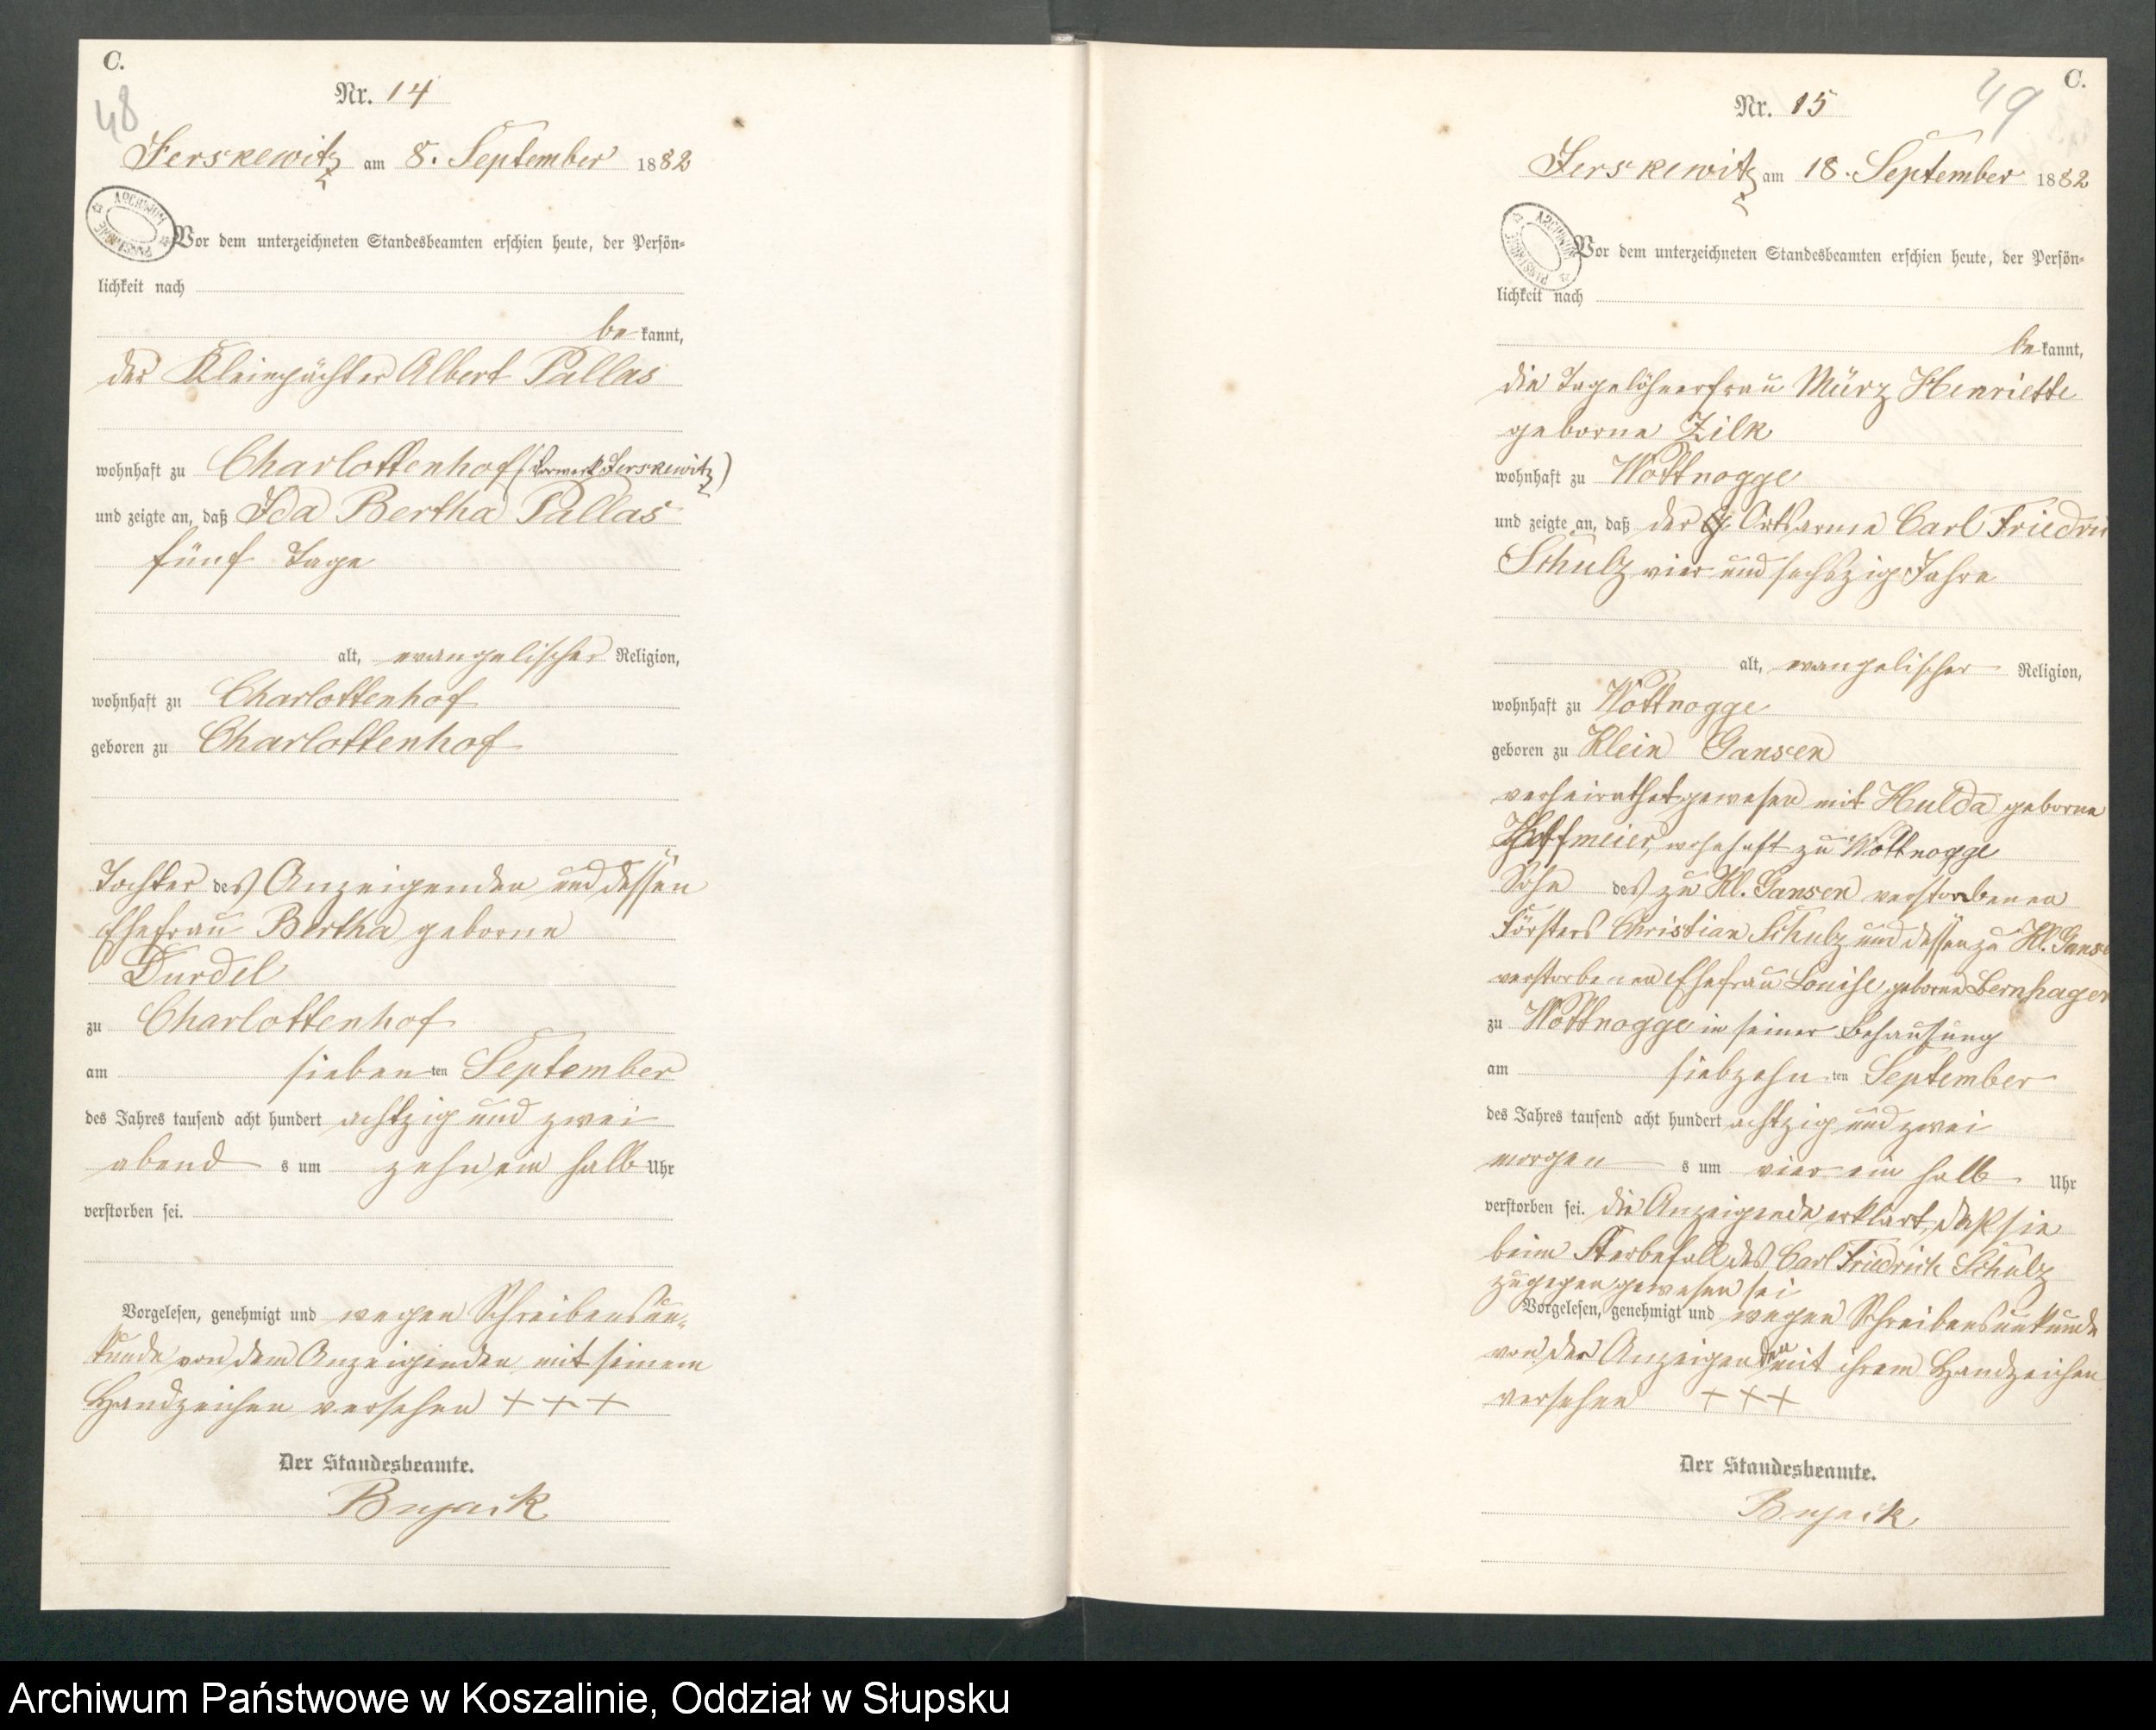 C.
48
Nr. 14
Jerskewitz am 8. September 1882
Vor dem unterzeichneten Standesbeamten erschien heute, der Persön-
lichkeit nach
be kannt,
der Kleinpächter Albert Pallas
wohnhaft zu Charlottenhof (Vorwerk Jerskewitz)
und zeigte an, daß Ida Bertha Pallas
fünf Tage
alt, evangelischer Religion,
wohnhaft zu Charlottenhof
geboren zu Charlottenhof
Tochter des Anzeigenden und dessen
Ehefrau Bertha geborne
Durdel
zu Charlottenhof
am sieben ten September
des Jahres tausend acht hundert achtzig und zwei
abend s um zehn ein halb Uhr
verstorben sei.
Vorgelesen, genehmigt und wegen Schreibensun-
kunde von dem Anzeigenden mit seinem
Handzeichen versehen + + +
Der Standesbeamte.
C.
49
Nr. 15
Jerskewitz am 18. September 1882
Vor dem unterzeichneten Standesbeamten erschien heute, der Persön-
lichkeit nach
be kannt,
die Tagelöhnerfrau Mürz Henriette
geborne Zilk
wohnhaft zu Wottnogge
und zeigte an, daß der Ortsarme Carl Friedri
Schulz vier und sechszig Jahre
alt, evangelischer Religion,
wohnhaft zu Wottnogge
geboren zu Klein Gansen
verheirathet gewesen mit Hulda geborne
wohnhaft zu Wottnogge
Sohn des zu Kl. Gansen verstorbenen
Försters Christian Schulz und dessen zu Kl. Ganse
verstorbenen Ehefrau Louise geborne Bernhagen
zu Wottnogge in seiner Behausung
am siebzehn ten September
des Jahres tausend acht hundert achtzig und zwei
morgen s um vier ein halb Uhr
verstorben sei. die Anzeigende erklärt, daß sie
beim Sterbefall des Carl Friedrich Schulz
zugegen gewesen sei
Vorgelesen, genehmigt und wegen Schreibensunkunde
von der Anzeigenden mit ihrem Handzeichen
versehen + + +
Der Standesbeamte.
Archiwum Państwowe w Koszalinie, Oddział w Słupsku